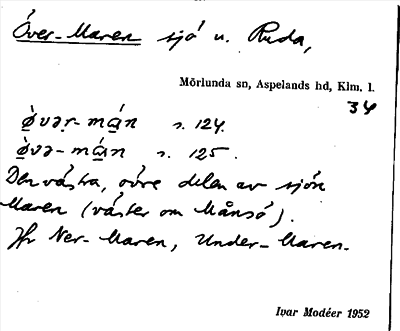 Över-Maren sjö u. Ruda,
Mörlunda sn, Aspelands hd, Klm. l.
34
ø̀vər-mán s. 124.
ø̀və-mán s. 125.
Den västra, övre delen av sjön
Maren (väster om Månsö).
Jfr Ner-Maren, Under-Maren.
Ivar Modéer 1952